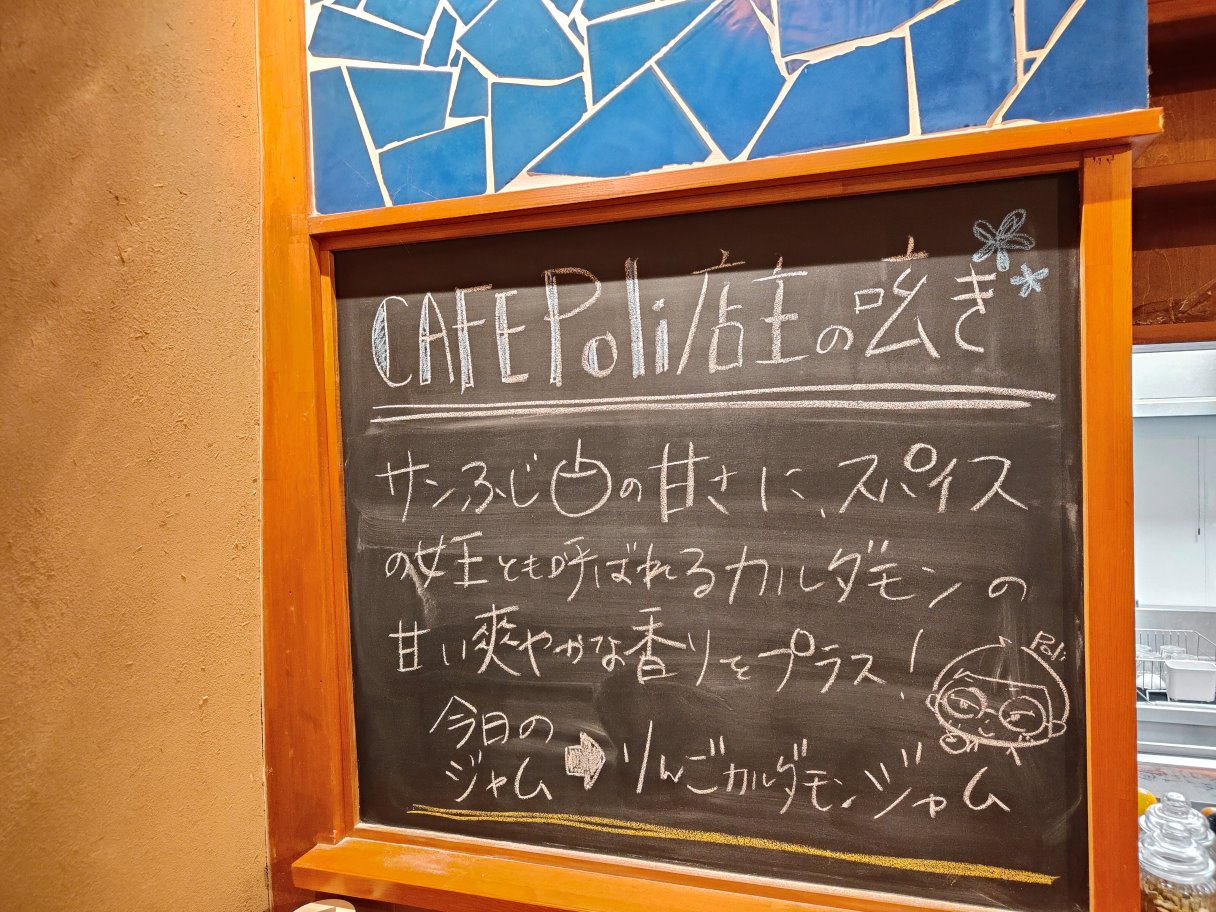 CAFE Poli店主の呟き
サンふじの甘さに、スパイス
の女王とも呼ばれるカルダモンの
甘い爽やかな香りをプラス!
Poli
今日の
ジャム
りんごカルダモンジャム